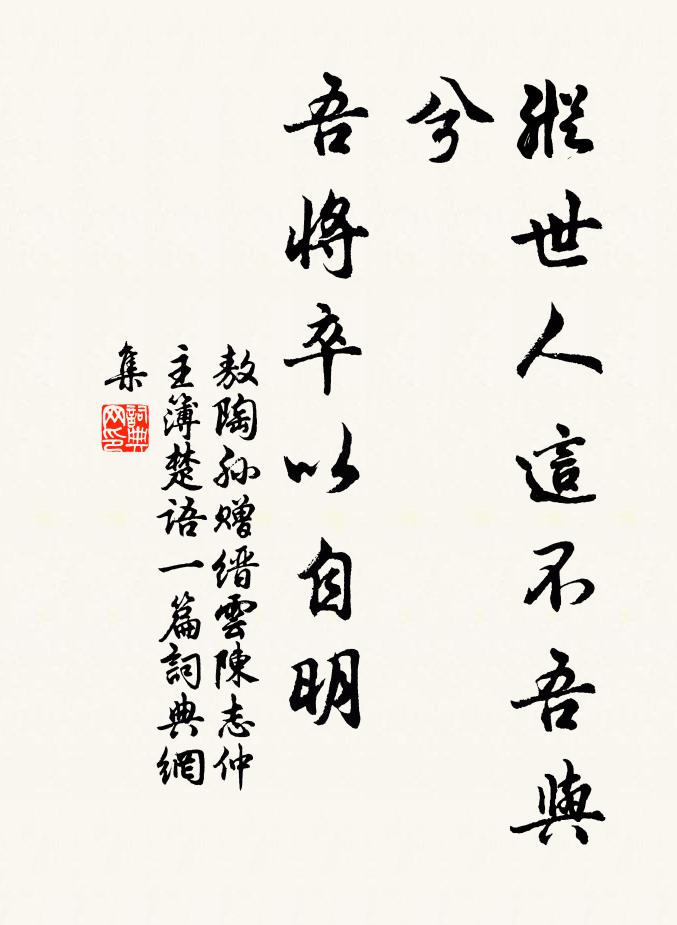 縱世人這不吾與
兮
吾將卒以自明
敖陶孙赠缙雲陳志仲
主簿楚語一篇詞典網
集
詞典网印